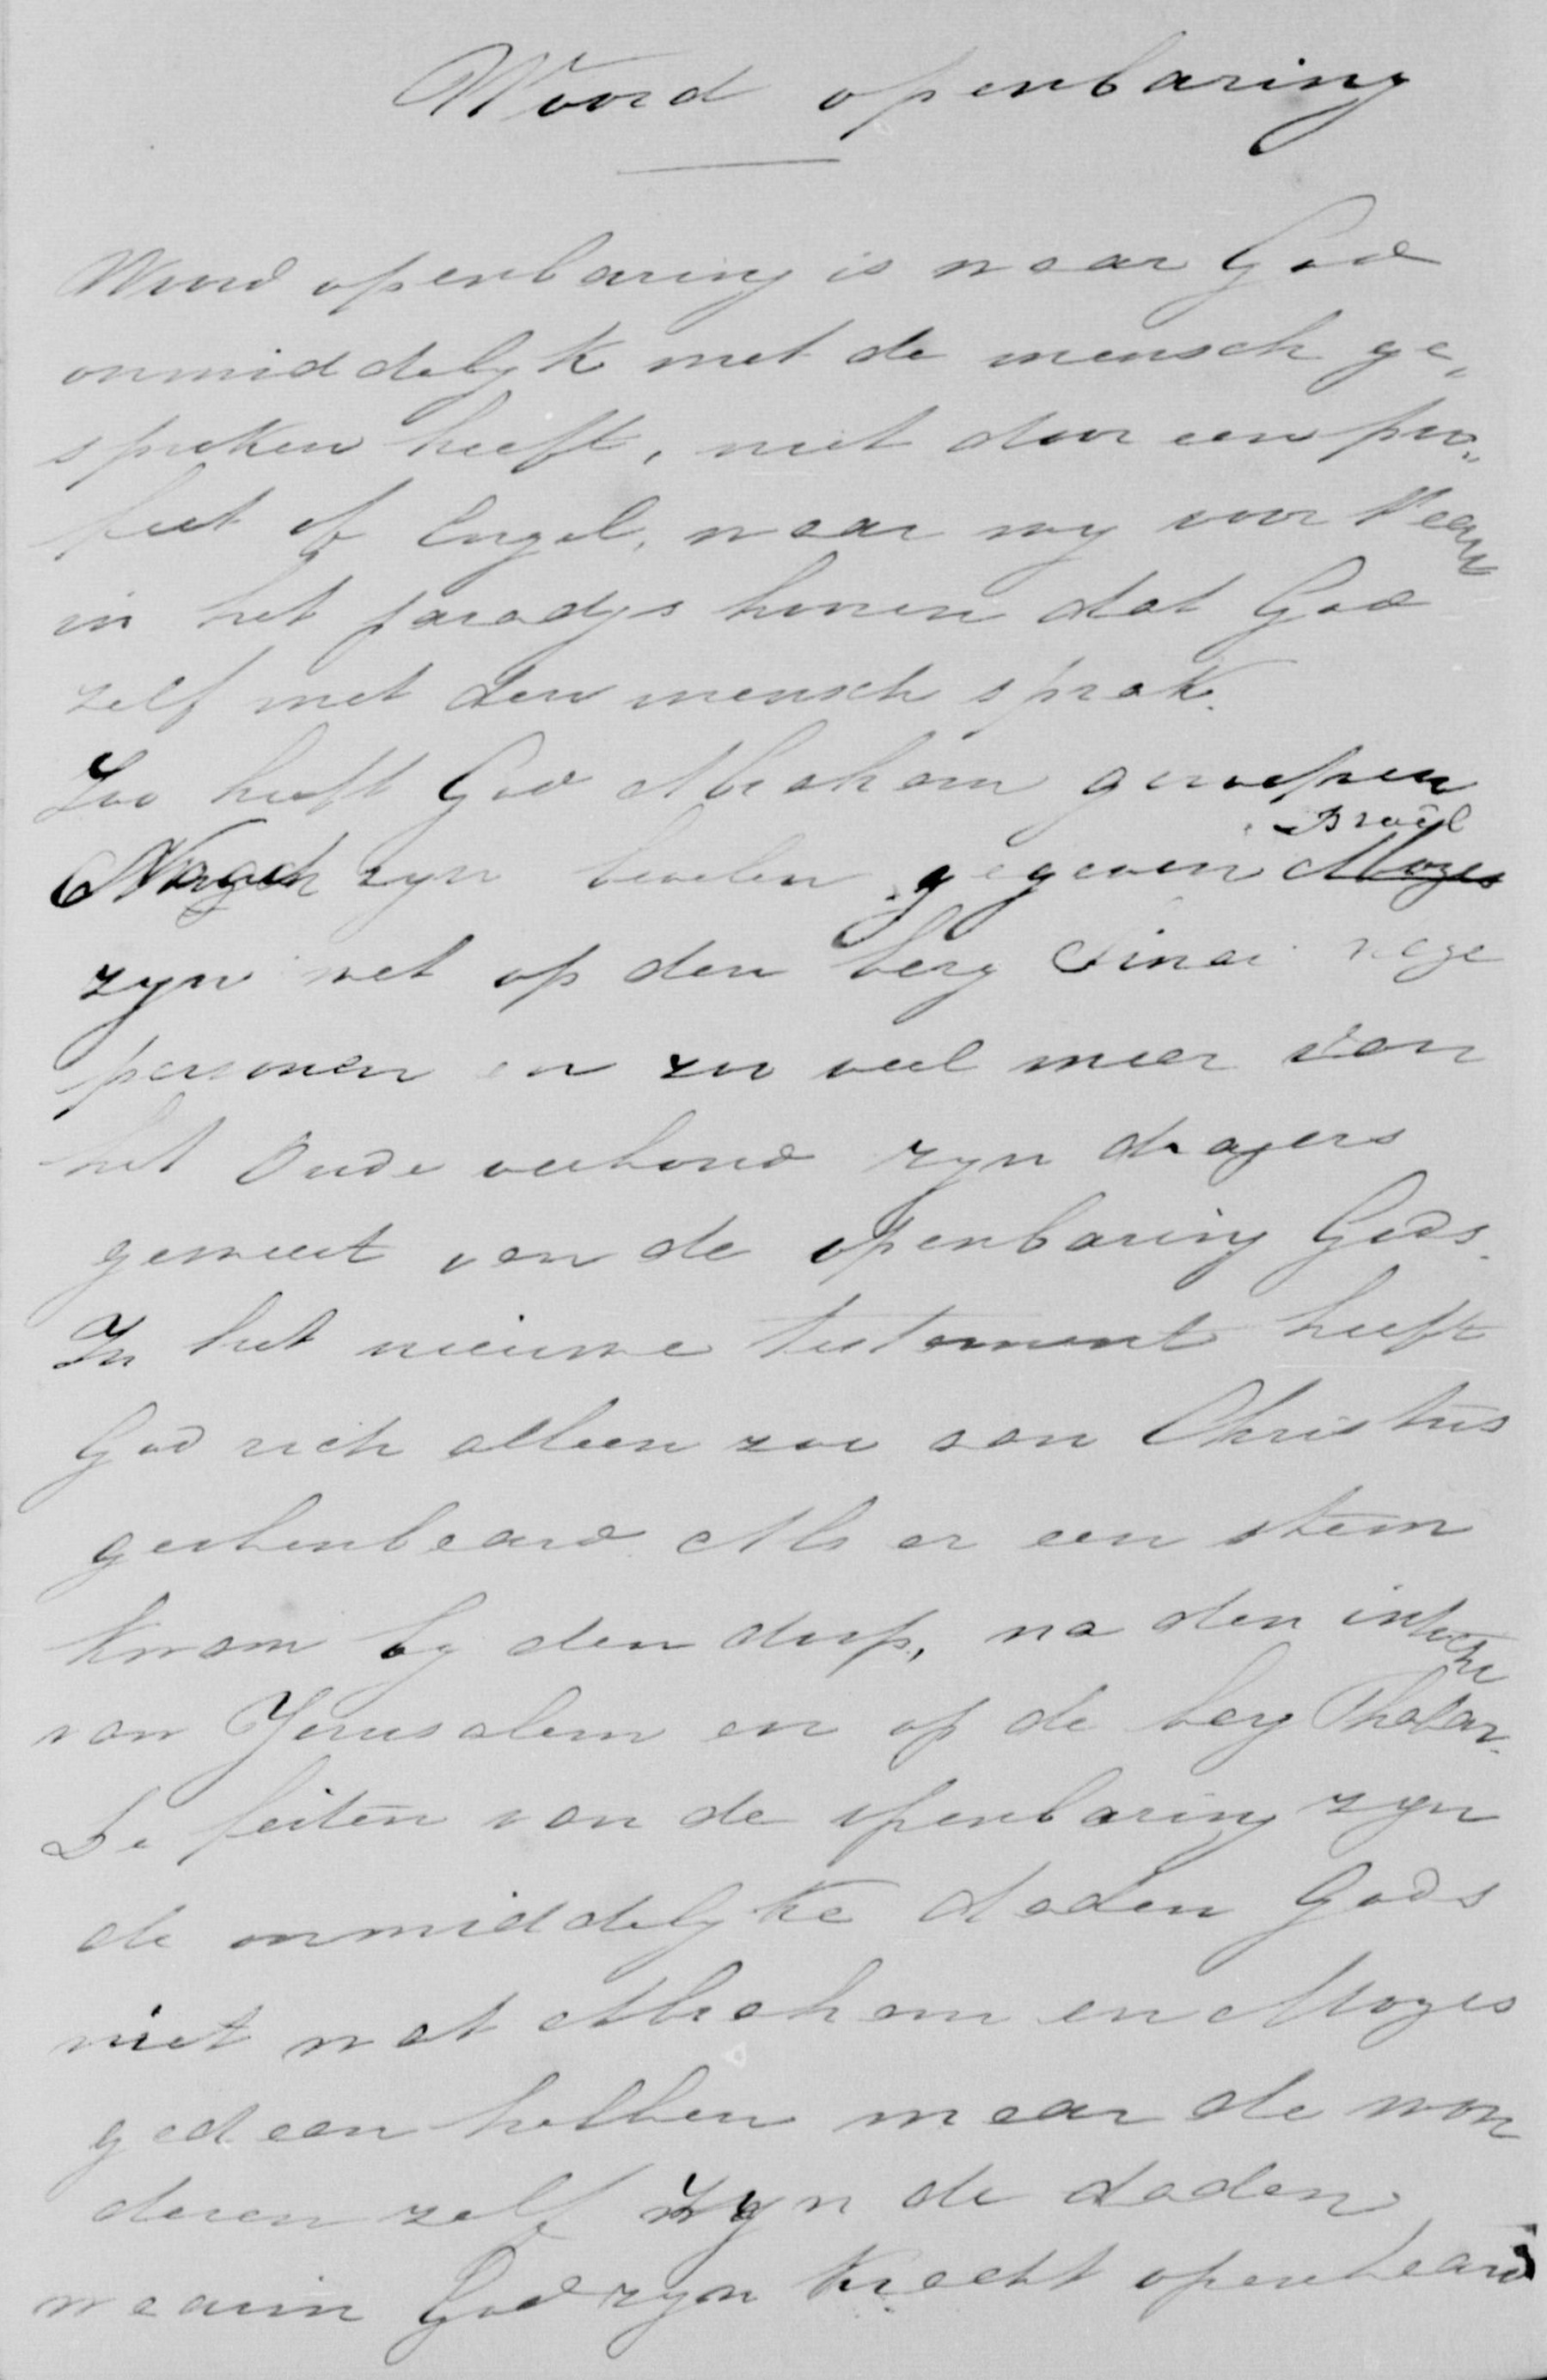 Woord openbaring
Woord openbaring is waar God
onmiddelyk met de mensch ge„
sproken heeft, niet door een pro„
feet of Engel, maar wy voor 't eerst
in het paradys hooren dat God
zelf met den mensch sprak.
Zoo heeft God Abraham geroepen
Noach zyn bevelen gegeven Israël
zyn wet op den berg Sinai
personen en zoo veel meer van
het Oude verbond zyn dragers
geweest van de openbaring Gods.
In het nieuwe testament heeft
God zich alleen zoo aan Christus
geopenbeard Als er een stem
kwam by den doop, na den intocht
van Jerusalem en op de berg Thabor.
De feiten van de openbaring zyn
de onmiddelyke daden Gods
niet wat Abraham en Mozes
gedaan hebben maar de won
deren zelf zyn de daden
waarin God zyn kracht openbaard